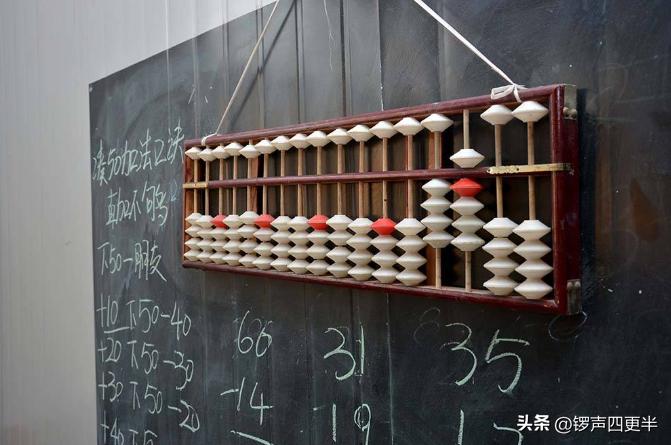 凑50加法口诀
直加不够
下50一
+10下50-40
+20下50-30
+30下50-20
+40下5
66
-14
31
-19
35
头条 @锣声四更半